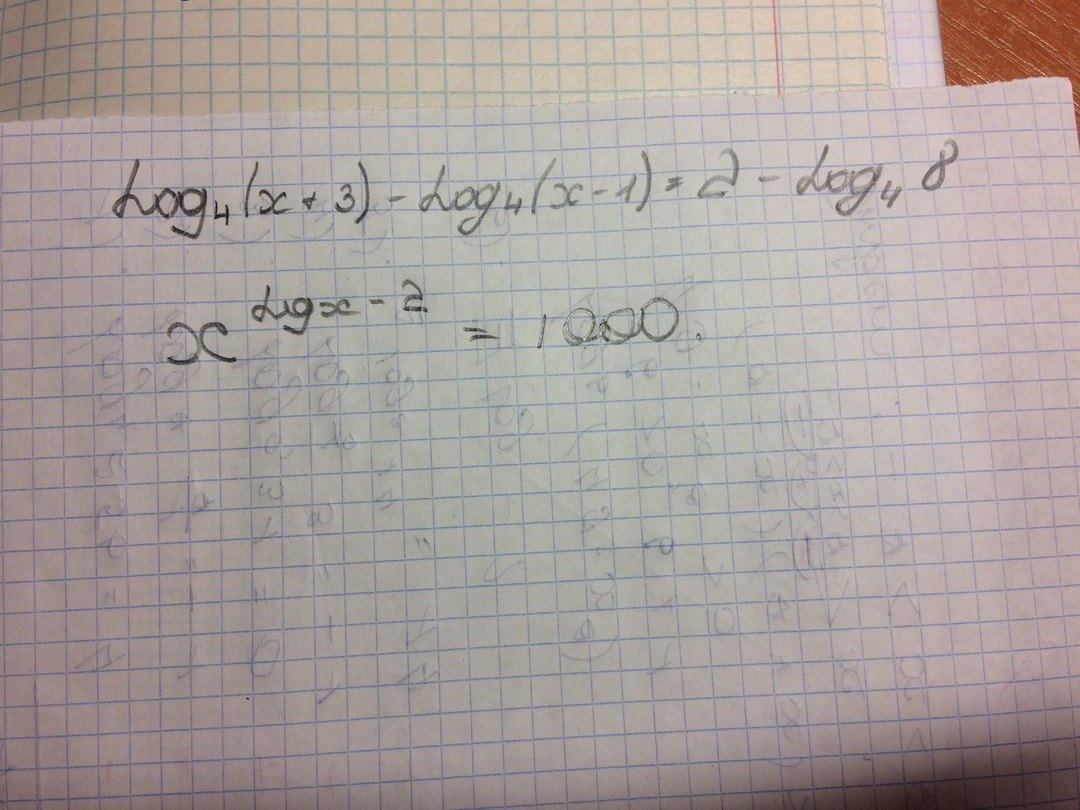 Log₄(x+3) - Log₄(x-1) = 2 - Log₄ 8
x^(Lgx - 2) = 1000.